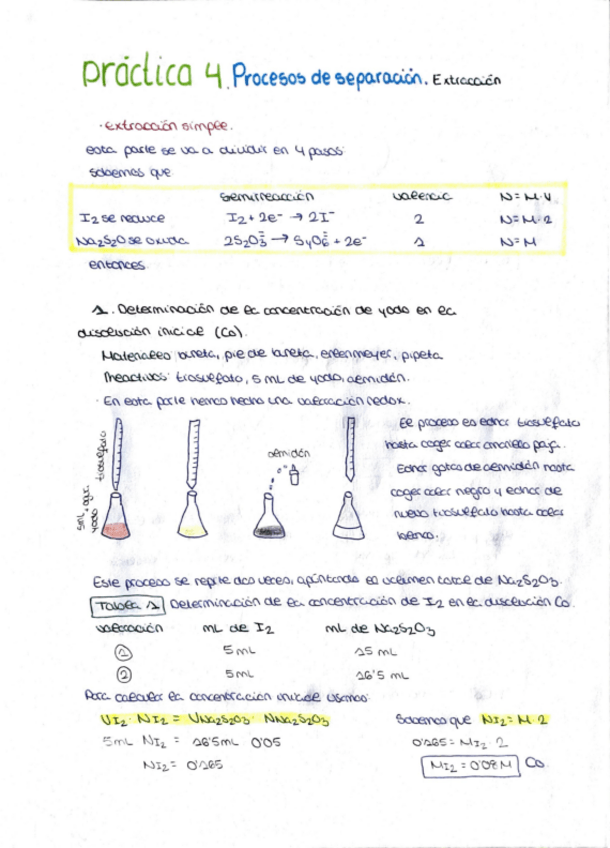 práctica 4. Procesos de separación. Extracción
· extracción simple.
esta parte se va a dividir en 4 pasos:
sabemos que
semirreacción valencia N = M·V
I2 se reduce I2 + 2e- → 2I- 2 N = M·2
Na2S2O se oxida 2S2O3= → S4O6= + 2e- 1 N = M
entonces
1. Determinación de la concentración de yodo en la
disolución inicial (Co).
Materiales: bureta, pie de bureta, erlenmeyer, pipeta
Reactivos: tiosulfato, 5 mL de yodo, almidón.
· En esta parte hemos hecho una valoración redox.
tiosulfato
5mL + agua
yodo
almidón
El proceso es echar tiosulfato
hasta coger color amarillo paja.
Echar gotas de almidón hasta
coger color negro y echar de
nuevo tiosulfato hasta color
blanco.
Este proceso se repite dos veces, apuntando el volumen total de Na2S2O3.
Tabla 1 Determinación de la concentración de I2 en la disolución Co.
valoración mL de I2 mL de Na2S2O3
1 5 mL 15 mL
2 5 mL 16'5 mL
Para calcular la concentración inicial usamos:
VI2 · NI2 = VNa2S2O3 · NNa2S2O3 Sabemos que NI2 = M·2
5mL NI2 = 16'5mL 0'05 0'165 = MI2 · 2
NI2 = 0'165 MI2 = 0'08M Co